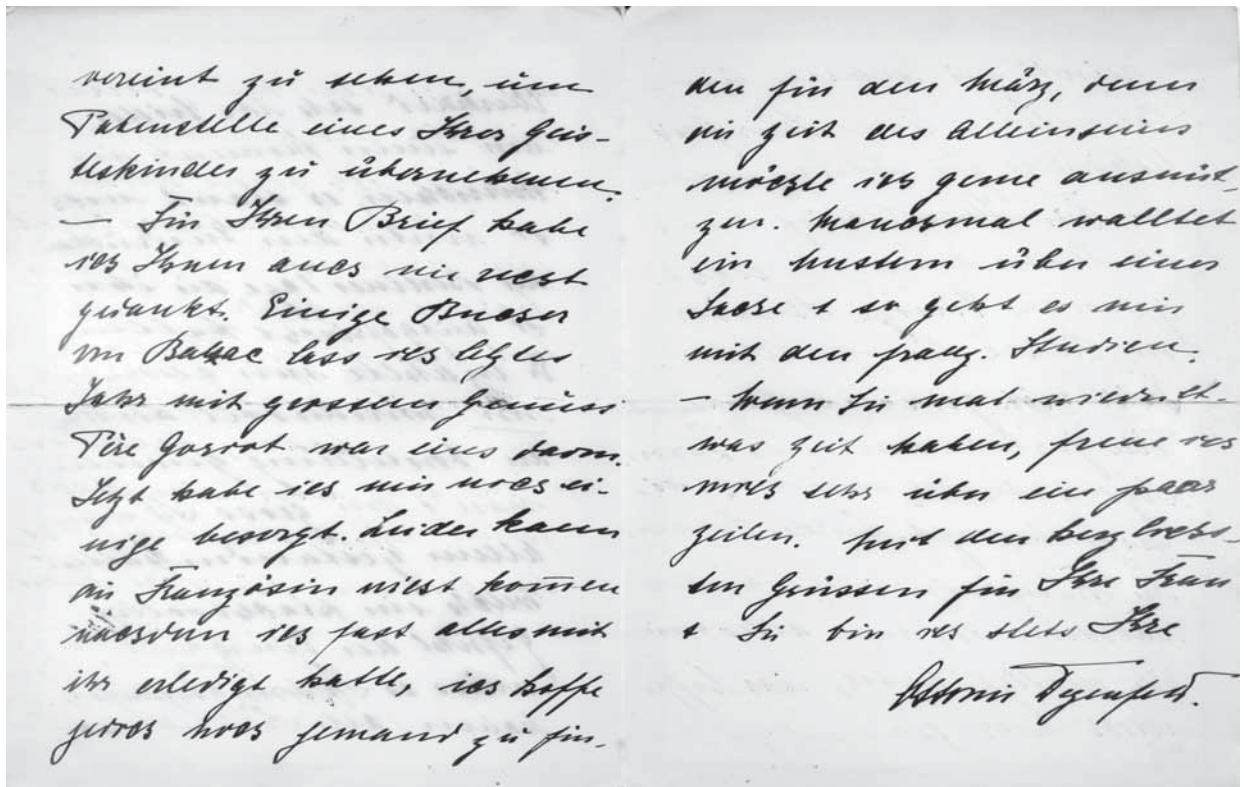 vereint zu sehen, um
Patenstelle eines Ihrer Geis-
teskinder zu übernehmen.
— Für Ihren Brief habe
ich Ihnen auch nie recht
gedankt. Einige Bücher
von Balzac lass ich letztes
Jahr mit grossem Genuss
Père Goriot war eines davon.
Jetzt habe ich mir noch ei-
nige besorgt. Leider kann
die Französin nicht kommen
nachdem ich fast alles mit
ihr erledigt hatte, ich hoffe
jedoch noch jemand zu fin-
den für den März, denn
die Zeit des Alleinseins
möchte ich gerne ausnüt-
zen. Manchmal walltet
ein Unstern über einer
Sache + so geht es mir
mit den franz. Studien.
— Wenn Sie mal wieder et-
was Zeit haben, freue ich
mich sehr über ein paar
Zeilen. Mit den herzlichs-
ten Grüssen für Ihre Frau
+ Sie bin ich stets Ihre
Ottonie Degenfeld.